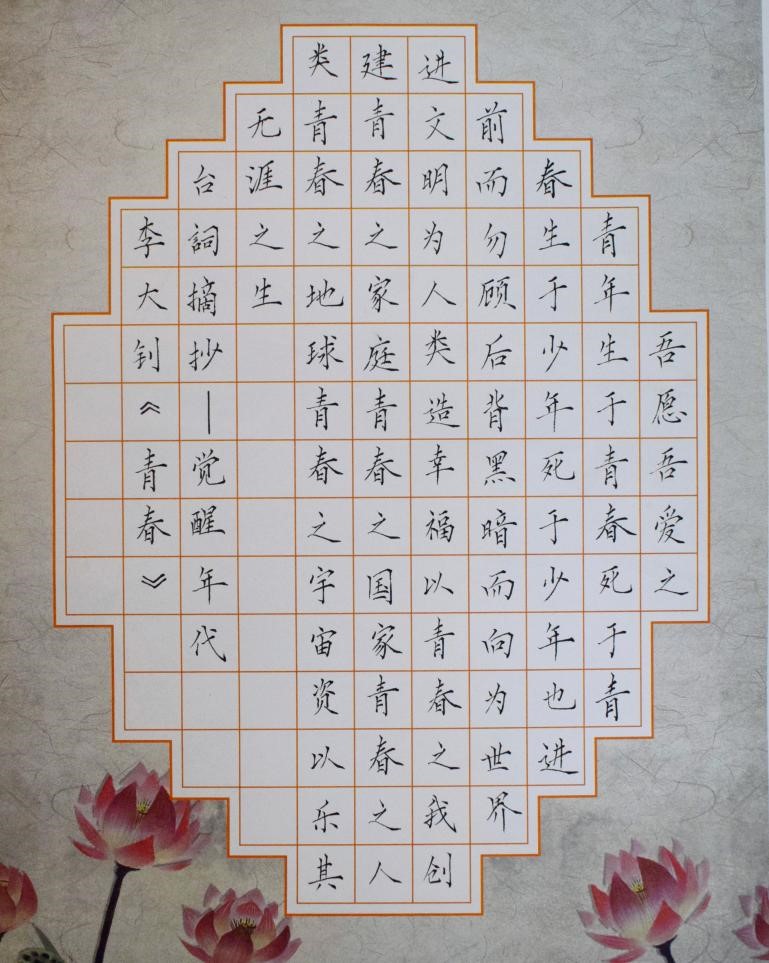 吾愿吾爱之
青年生于青春死于青
春生于少年死于少年也进
前而勿顾后背黑暗而向为世界
进文明为人类造幸福以青春之我创
建青春之家庭青春之国家青春之人
类青春之地球青春之宇宙资以乐其
无涯之生
台詞摘抄—觉醒年代
李大钊《青春》